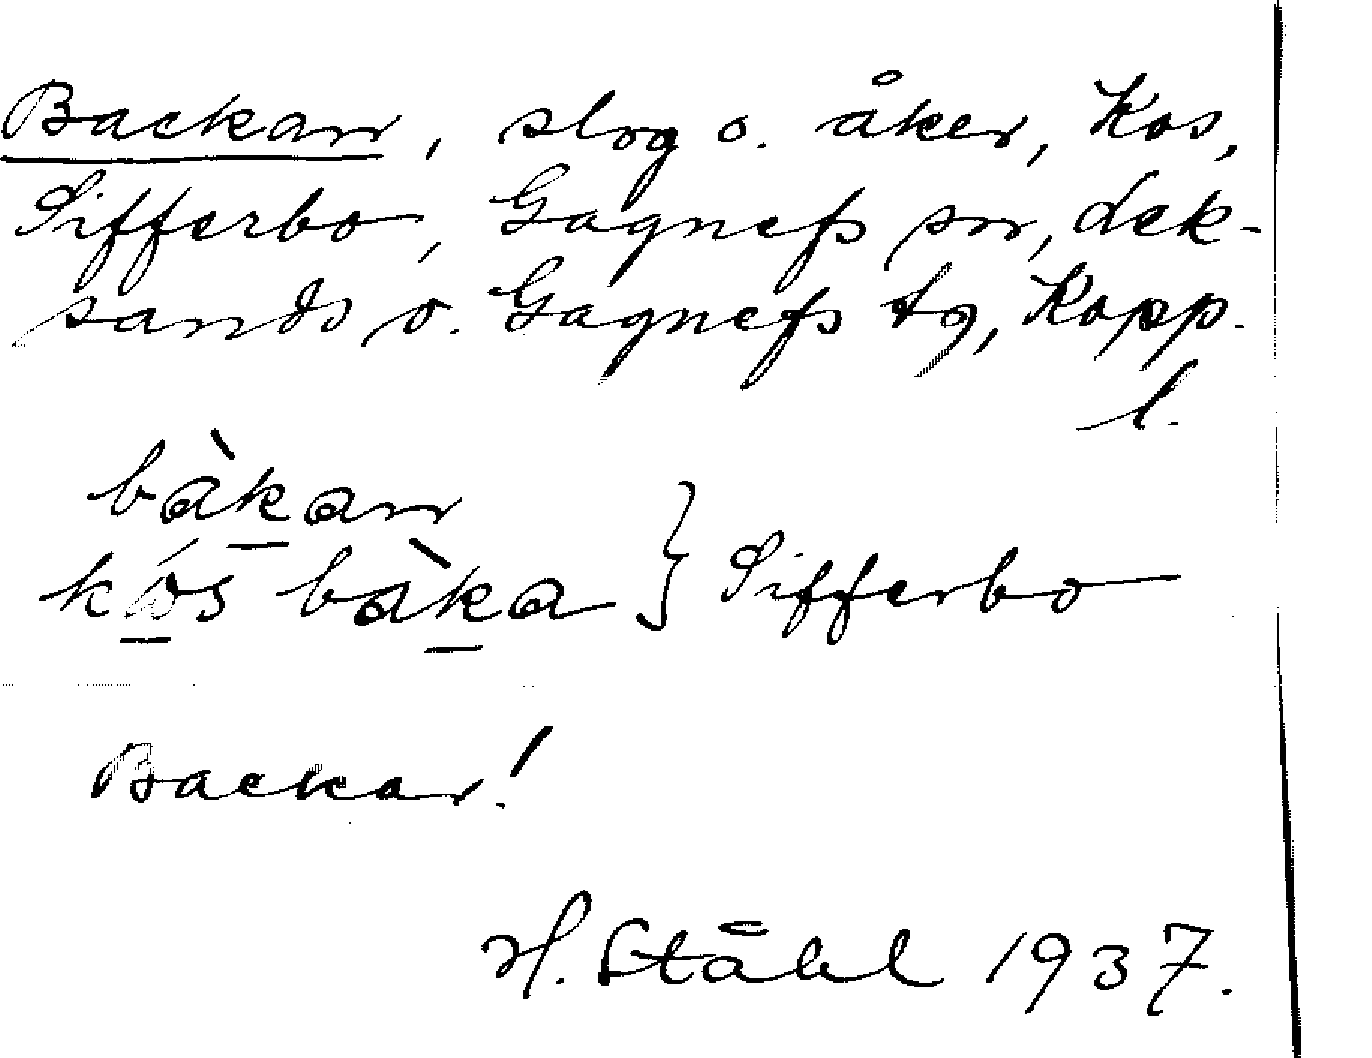 Backan, slog o. åker, Kos,
Sifferbo, Gagnefs sn, Lek-
sands o. Gagnefs tg, Kopp.
l.
bàkan
kós bàka } Sifferbo
Backar!
H. Ståhl 1937.